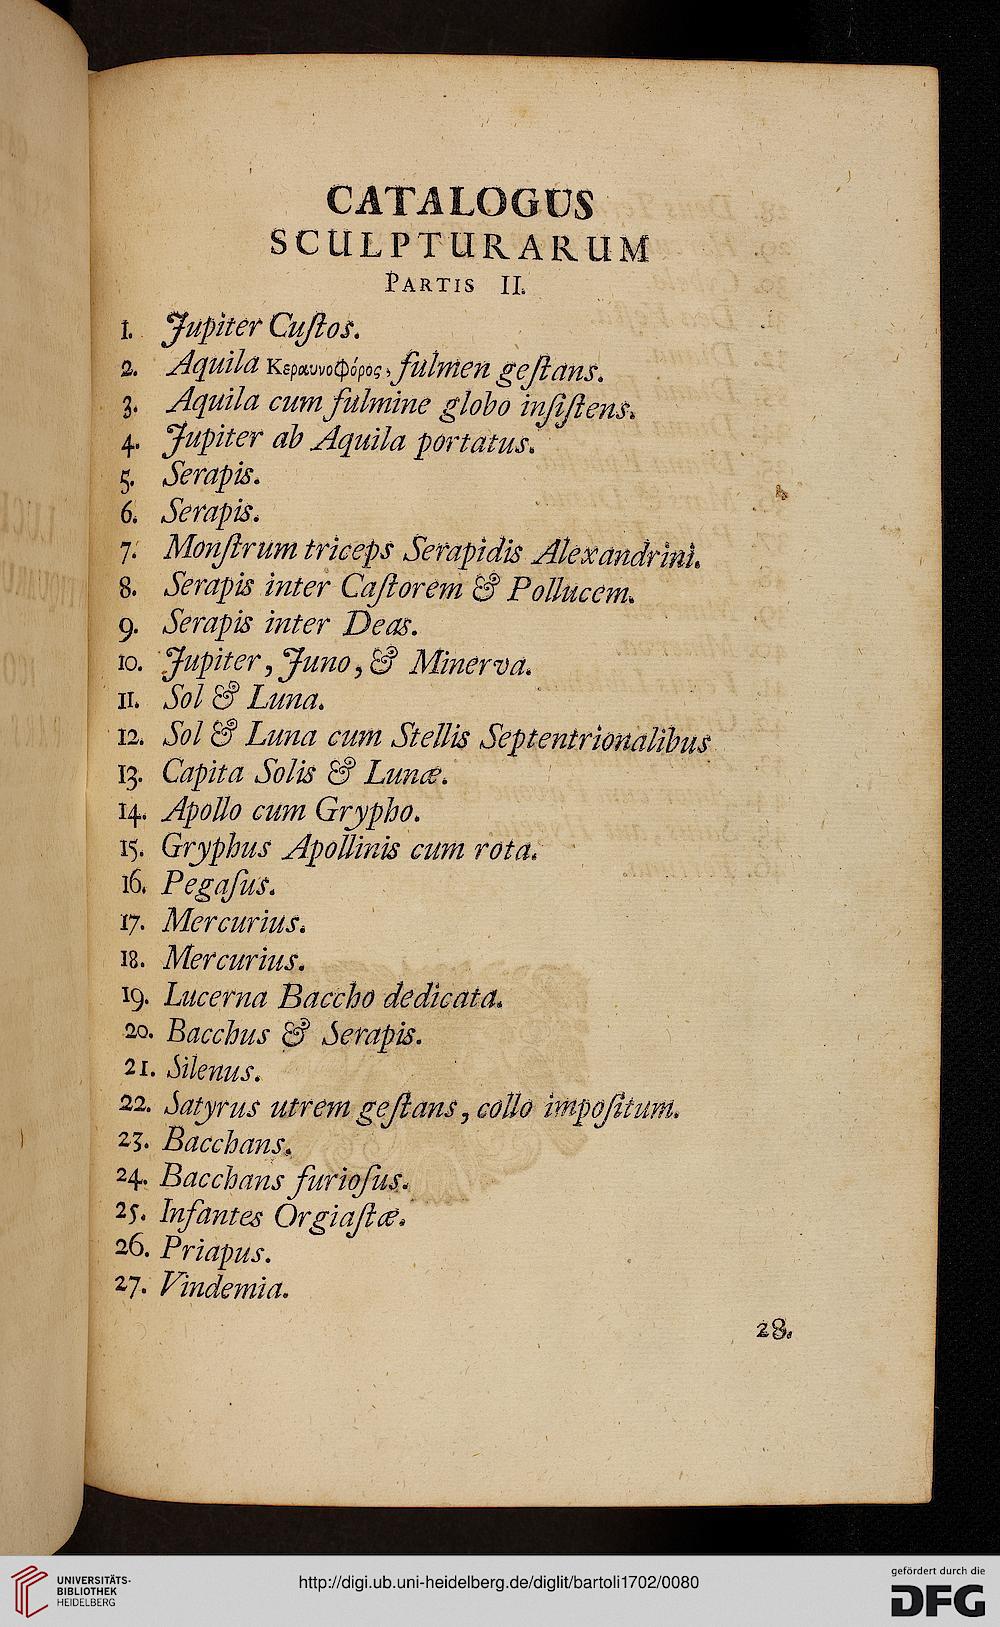 CATALOGUS
SCULPTURARUM
PARTIS II.
1. Jupiter Cuſtos.
2. Aquila Κεραυνοφόρος, fulmen geſtans.
3. Aquila cum fulmine globo inſiſtens.
4. Jupiter ab Aquila portatus.
5. Serapis.
6. Serapis.
7. Monſtrum triceps Serapidis Alexandrini.
8. Serapis inter Caſtorem & Pollucem.
9. Serapis inter Deas.
10. Jupiter, Juno, & Minerva.
11. Sol & Luna.
12. Sol & Luna cum Stellis Septentrionalibus
13. Capita Solis & Lunæ.
14. Apollo cum Grypho.
15. Gryphus Apollinis cum rota.
16. Pegaſus.
17. Mercurius.
18. Mercurius.
19. Lucerna Baccho dedicata.
20. Bacchus & Serapis.
21. Silenus.
22. Satyrus utrem geſtans, collo impoſitum.
23. Bacchans.
24. Bacchans furioſus.
25. Infantes Orgiaſtæ.
26. Priapus.
27. Vindemia.
28.
UNIVERSITÄTS-
BIBLIOTHEK
HEIDELBERG
http://digi.ub.uni-heidelberg.de/diglit/bartoli1702/0080
gefördert durch die
DFG